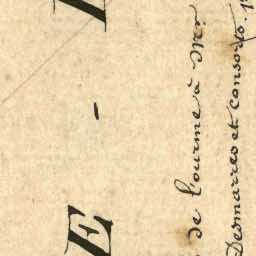 E -
de l'ourme à Mr.
Desmarres et consorts.